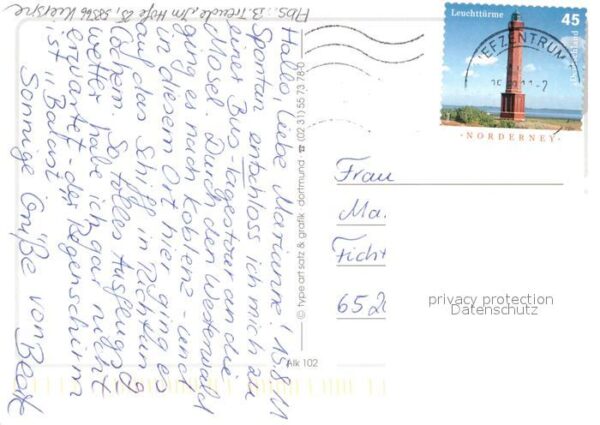 Abs.: B. Treude, Im Hofe 25, 58566 Kierspe
Hallo, liebe Marianne! 15.8.11
Spontan entschloss ich mich zu
einer Bus-Tagestour an die
Mosel. Durch den Westerwald
ging es nach Koblenz - und
in diesem Ort hier ging es
auf das Schiff in Richtung
Cochem. So tolles Ausflugs-
wetter habe ich gar nicht
erwartet - der Regenschirm
ist "Balast".
Sonnige Grüße von Beate
© typeart satz & grafik · dortmund · ☎ (02 31) 55 73 78-0
Alk 102
Leuchttürme
45
Deutschland
NORDERNEY
BRIEFZENTRUM
Frau
Ma
Ficht
652
privacy protection
Datenschutz